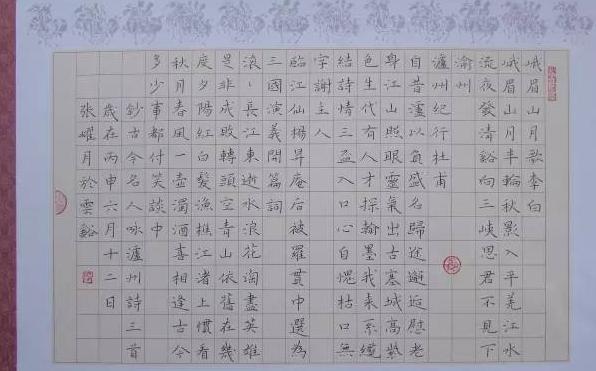 峨眉山月歌李白
峨眉山月半輪秋影入平羌江水
流夜發清谿向三峽思君不見下
渝州
瀘州紀行杜甫
自昔瀘以負盛名歸途邂逅慰老
身江山照眼靈氣出古塞城高紫
色生代有人才探翰墨我来系纜
結詩情三盃入口心自愧枯口無
字謝主人
臨江仙楊昇庵后被羅貫中選為
三國演義開篇詞
滾〻長江東逝水浪花淘盡英雄
是非成敗轉頭空青山依舊在幾
度夕陽紅白髮漁樵江渚上慣看
秋月春風一壺濁酒喜相逢古今
多少事都付笑談中
鈔古今名人咏瀘州詩三首
歲在丙申六月十二日
張耀月於雲谿